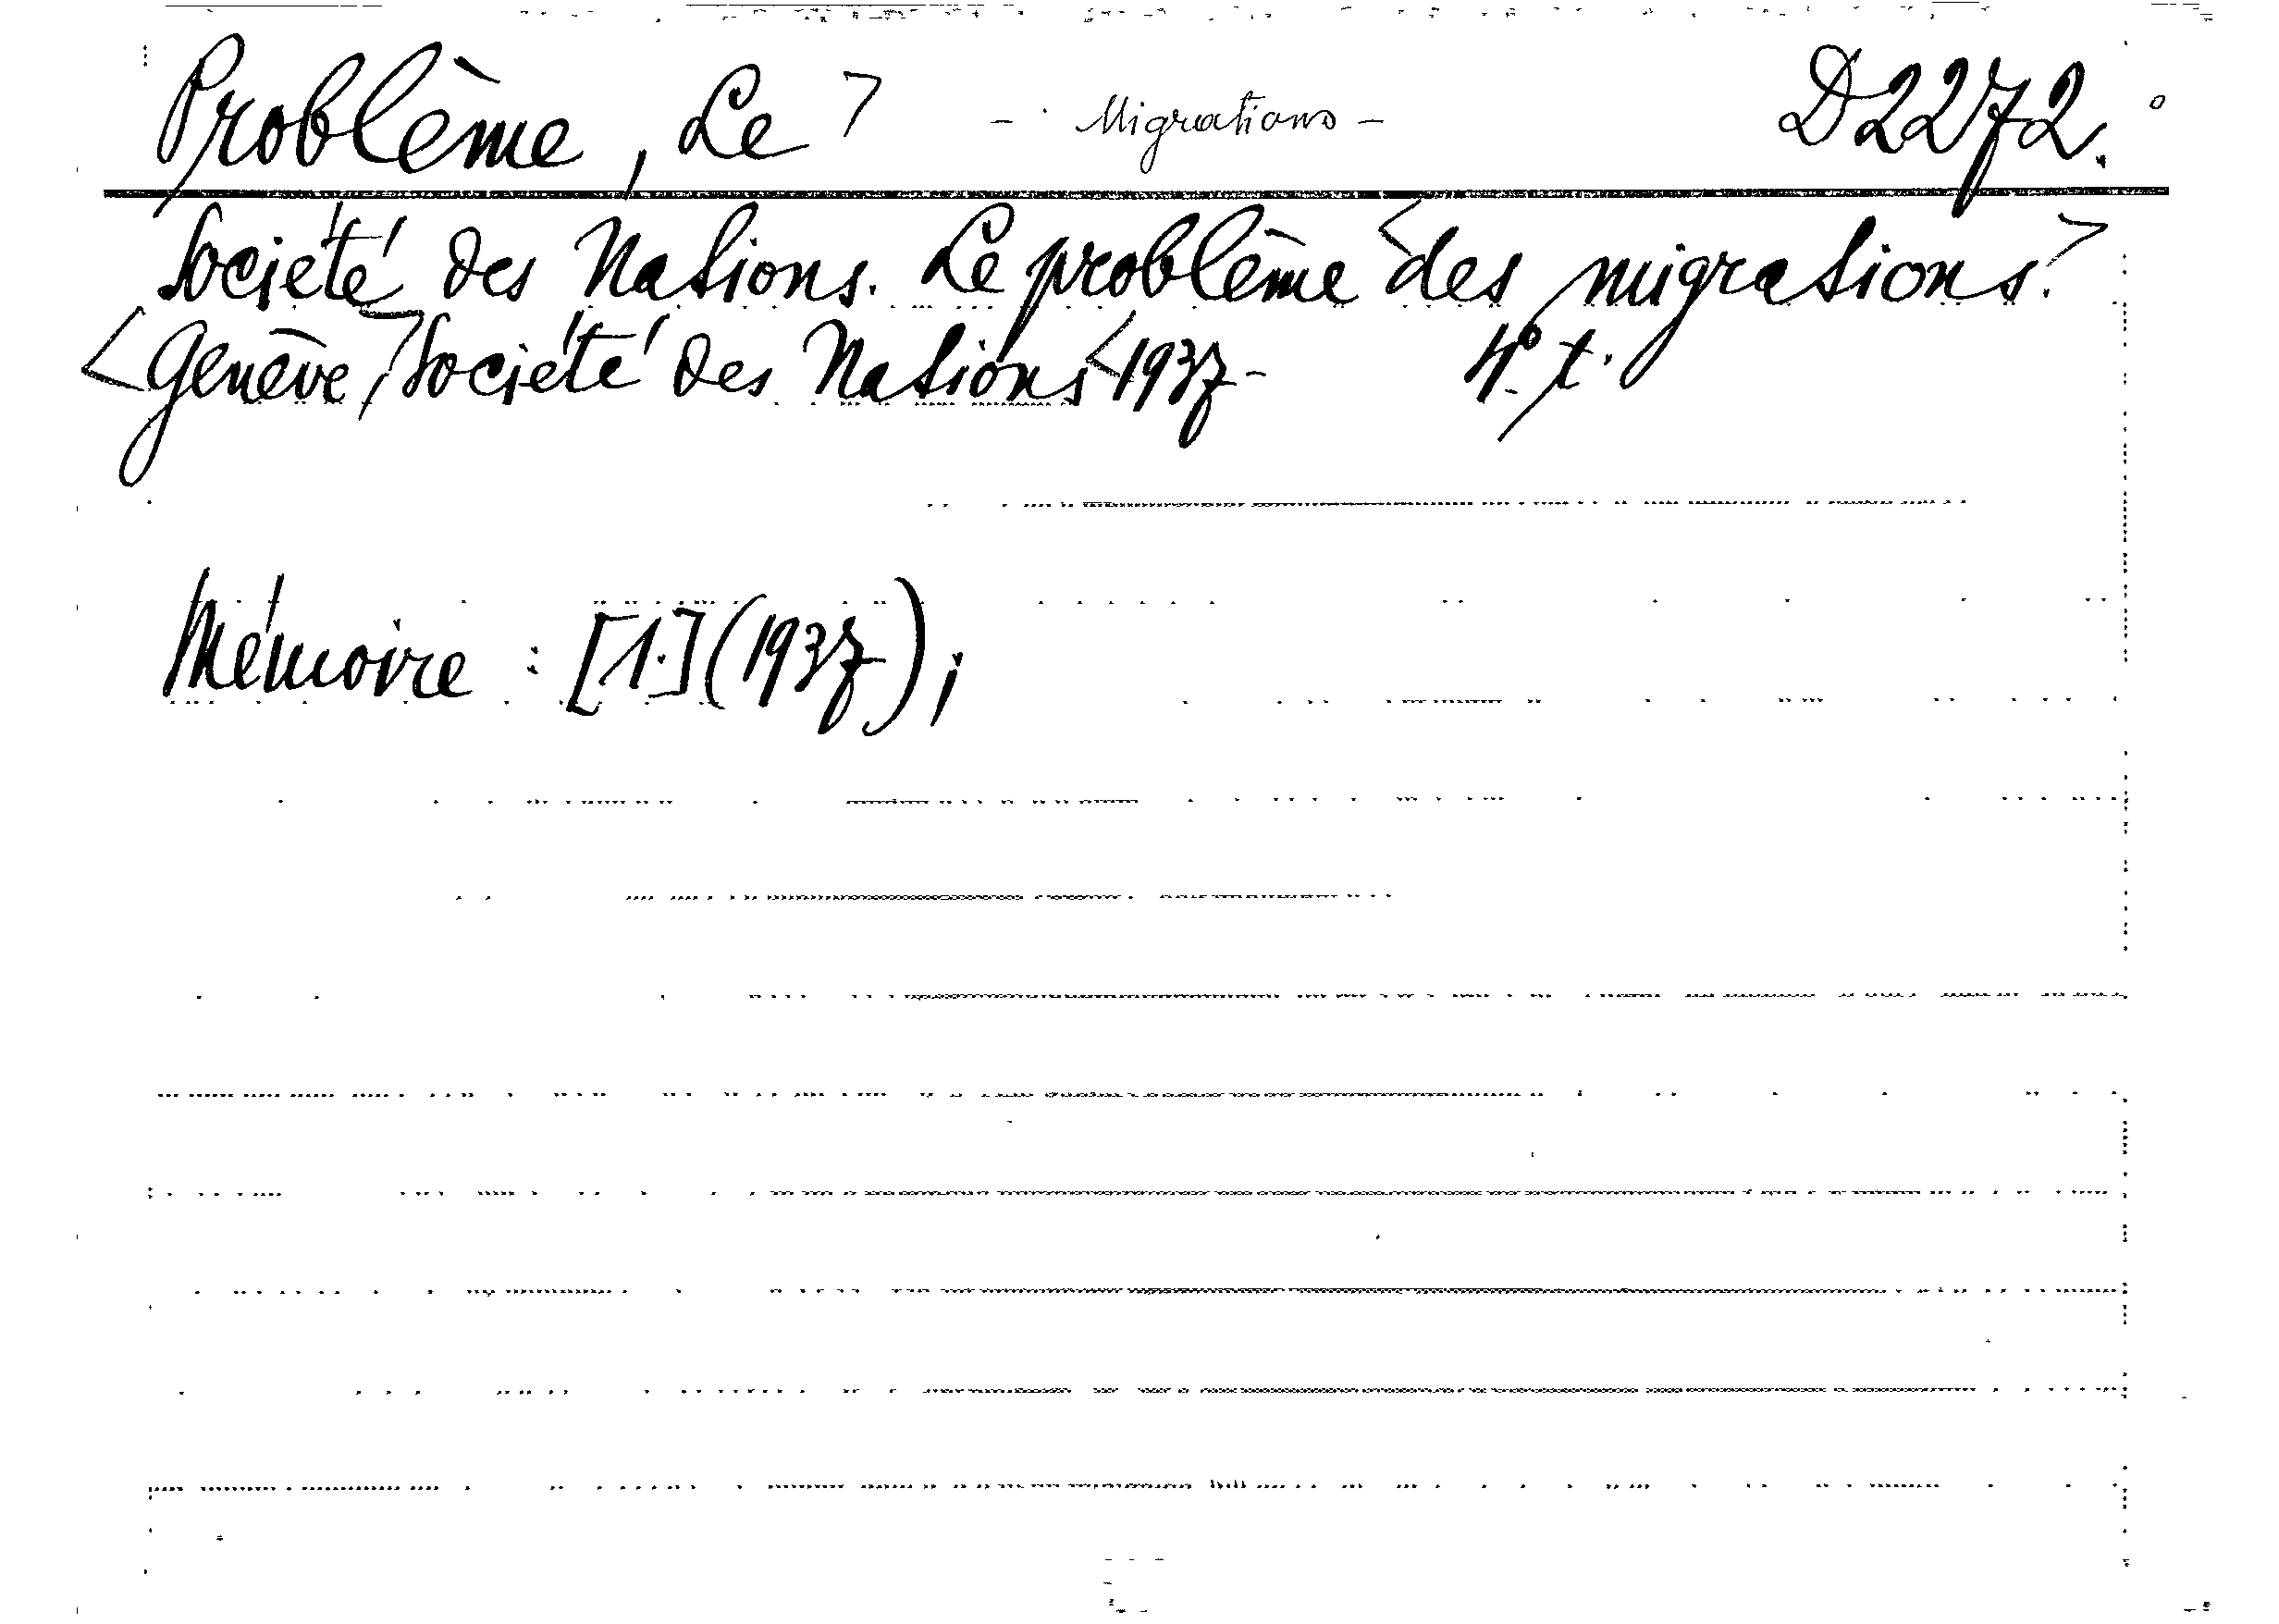 Problème, Le - Migrations - D2272.
Société des Nations. Le problème des migrations.
Genève, Société des Nations 1937- 4° t.
Mémoire : [1.] (1937);